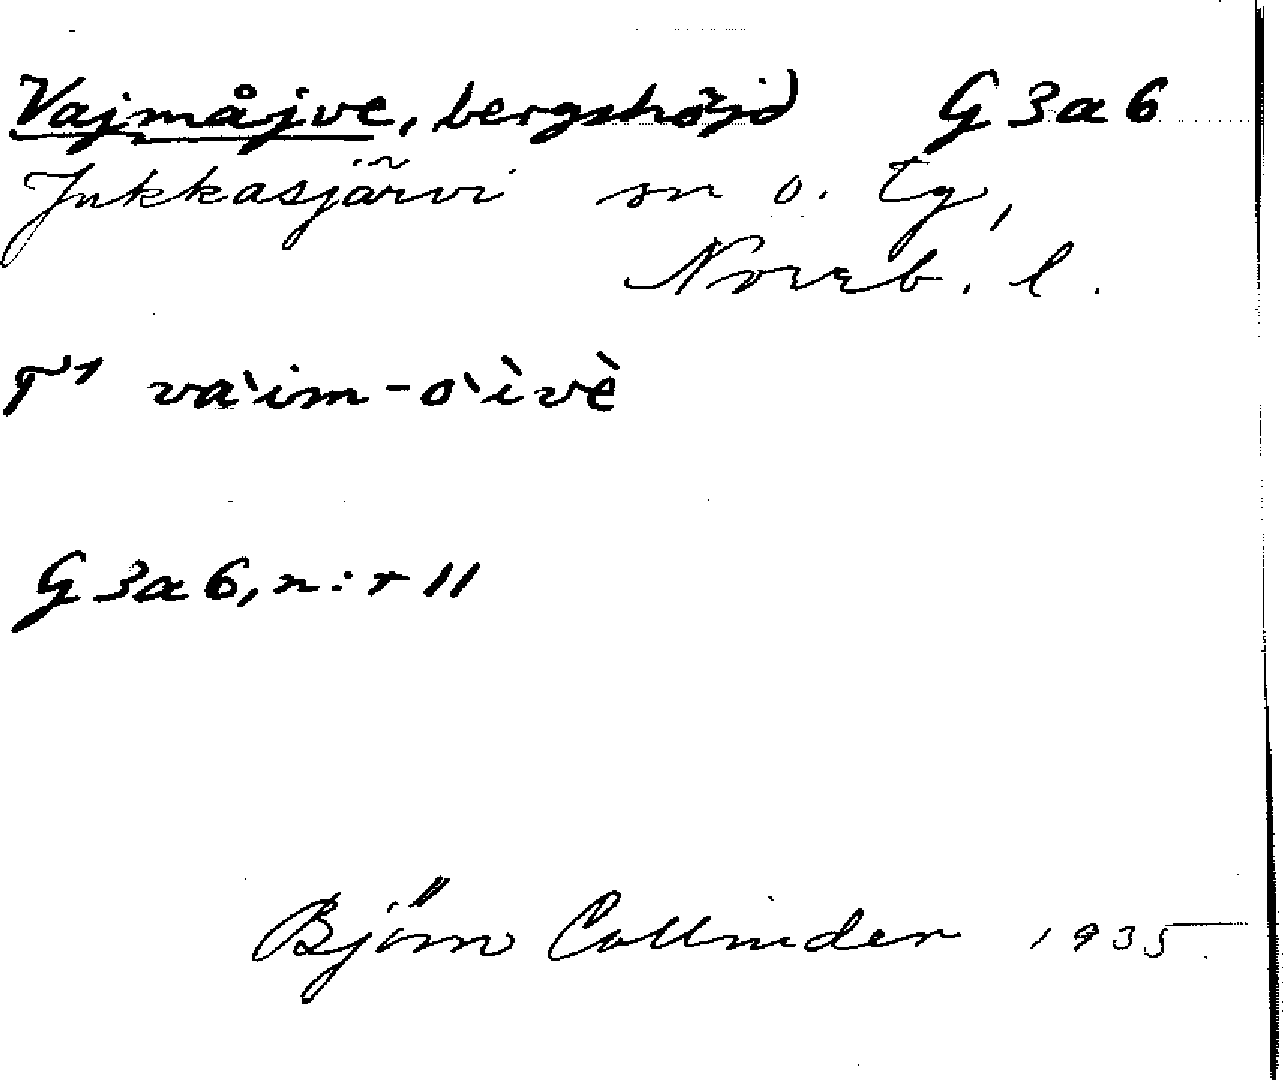 Vajmåjve, bergshöjd G 3 a 6
Jukkasjärvi sn o. tg,
Norrb. l.
T¹ va`im-o`ìvè
G 3 a 6, n:r 11
Björn Collinder 1935